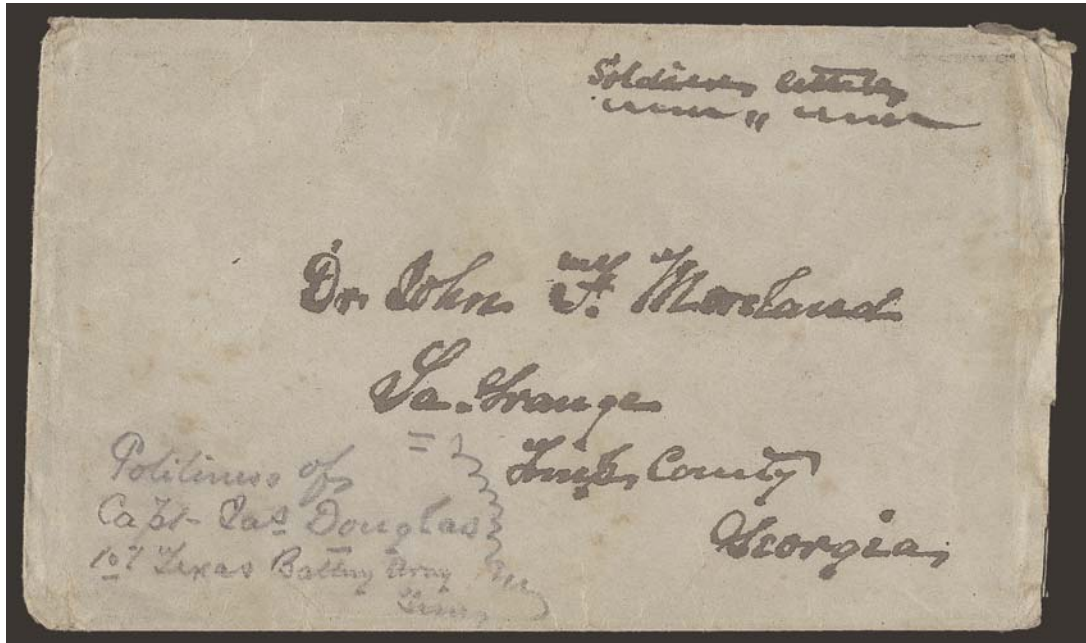 Soldiers letter
Dr. John F. Moreland
La. Grange
Troup County
Georgia
Politiness of
Capt. Jas Douglas
1st Texas Battery Army
Tenn